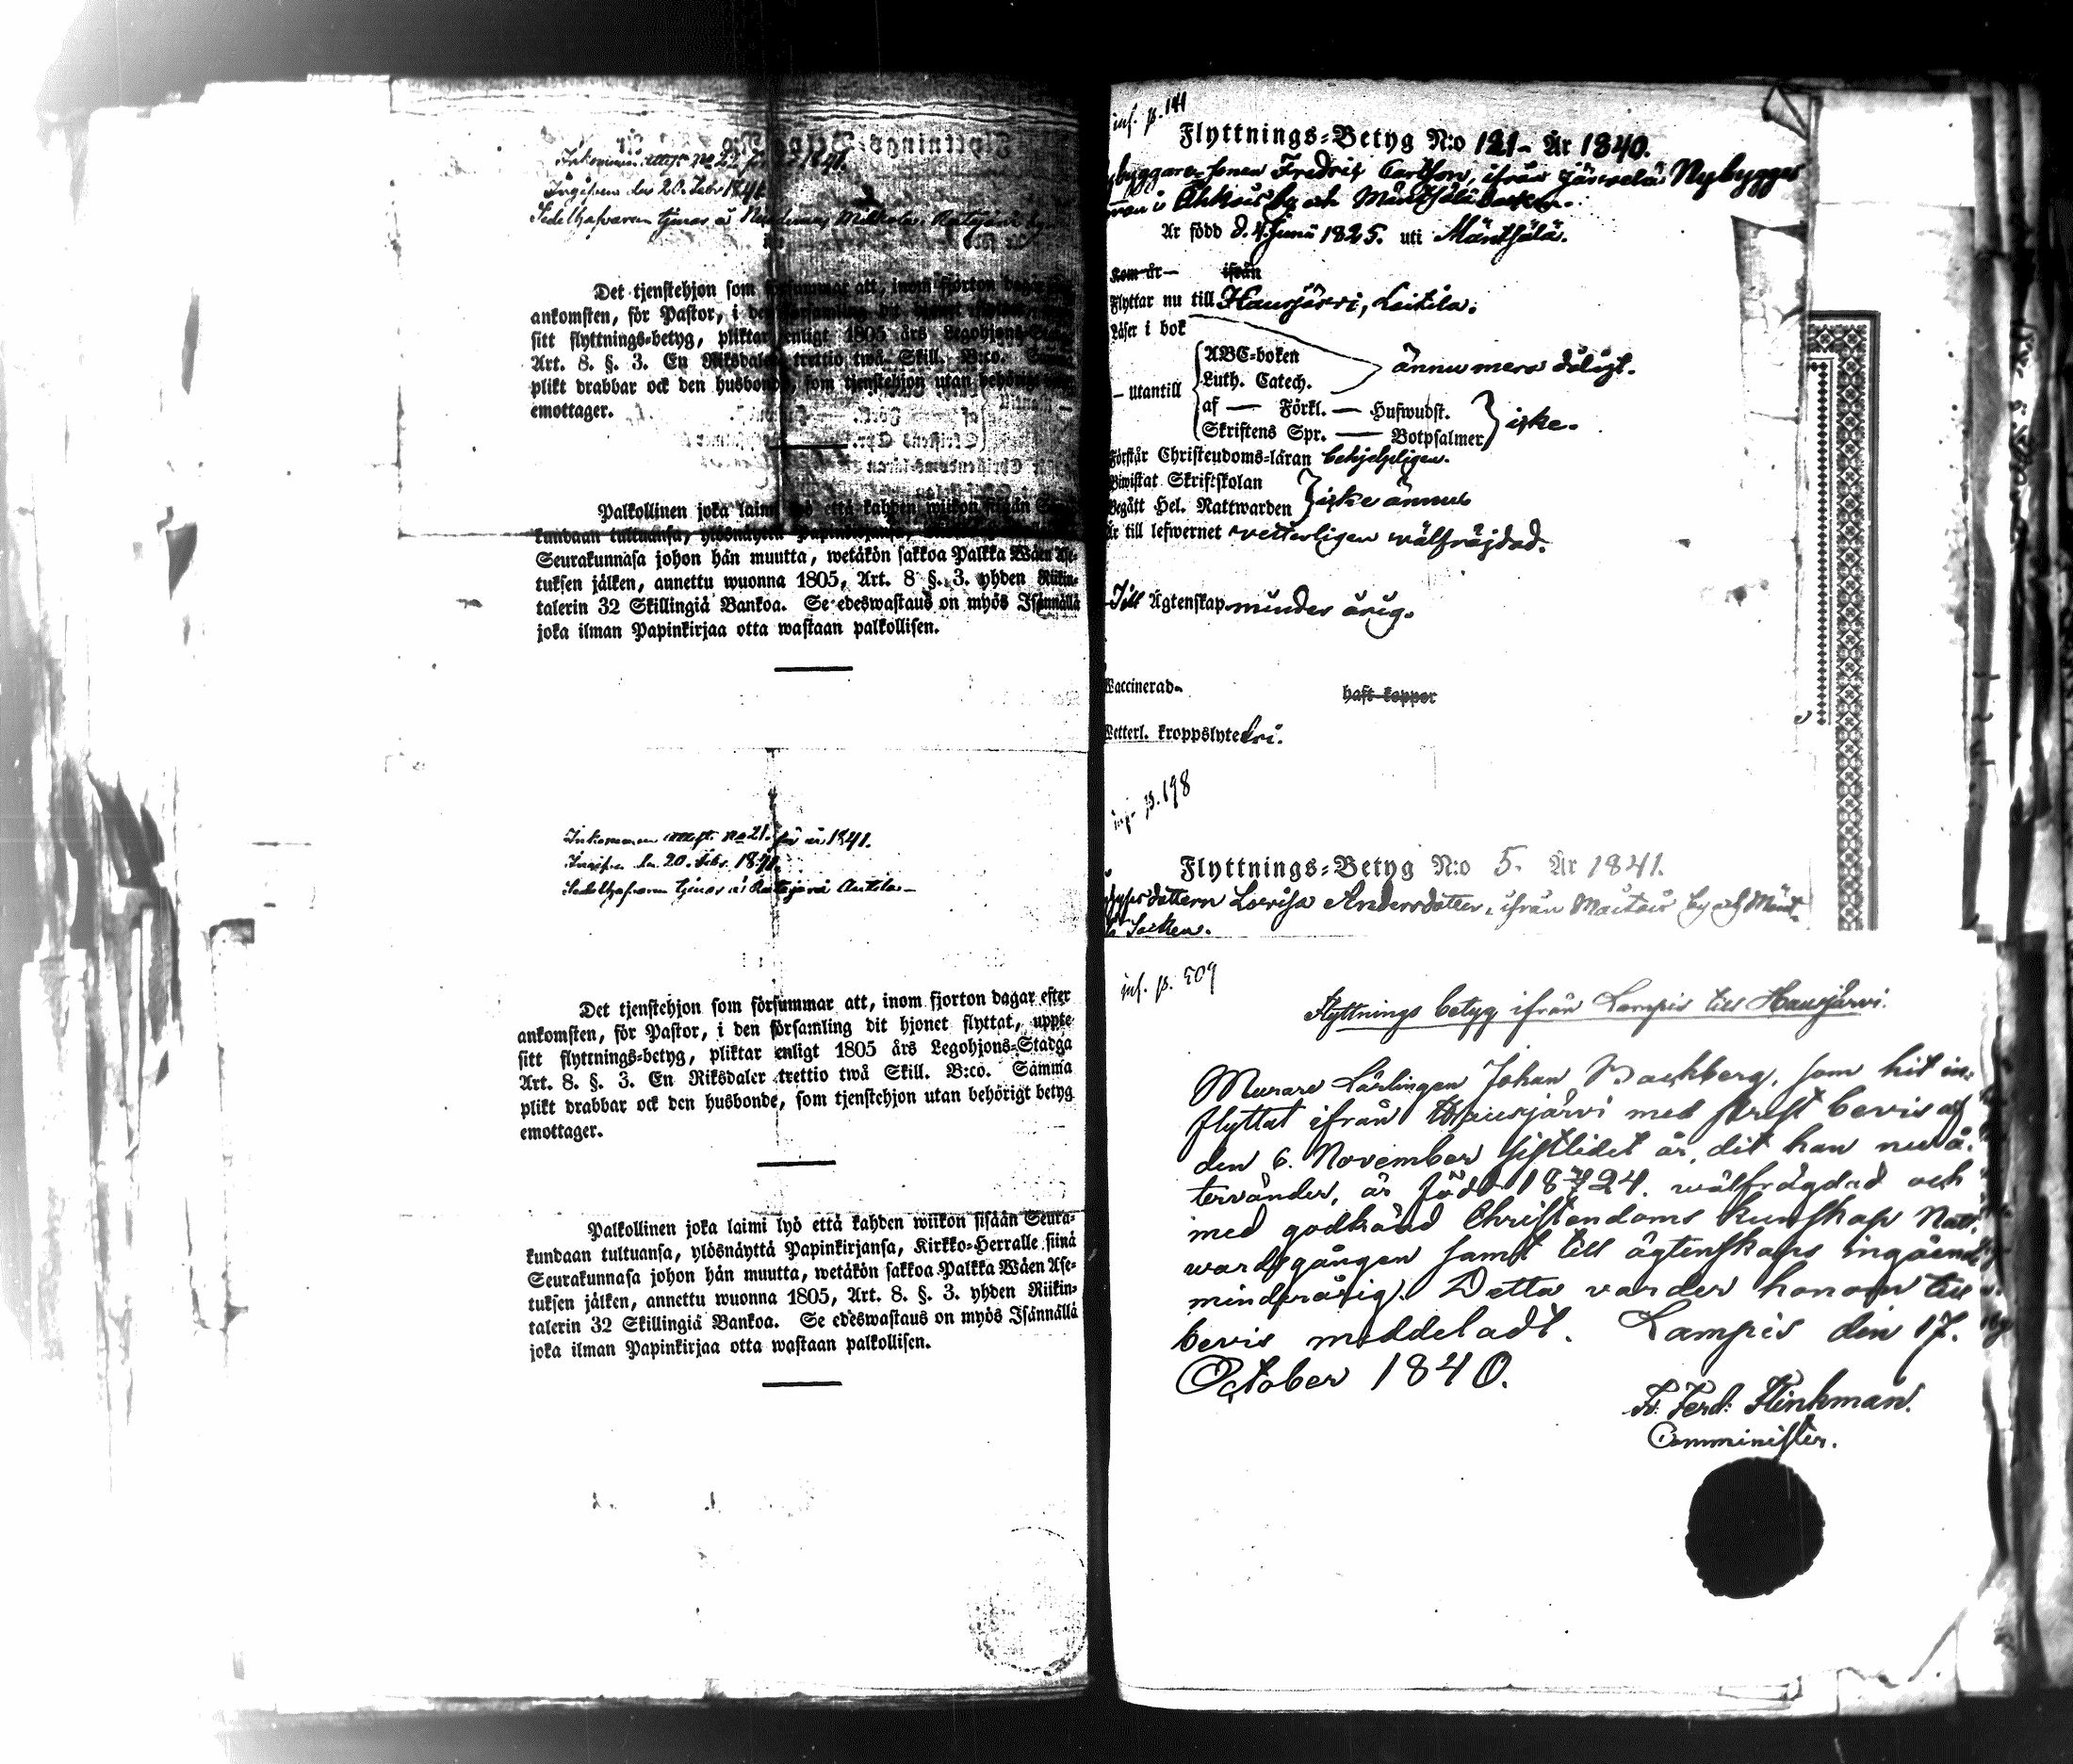 Inkommen attest No 22 för år 1841.
Ingifven den 20. Febr 1841.
Sedelhafvaren tjenar å
Det tjenstehjon som försummar att, inom fjorton dagar
ankomsten, för Pastor, i den församling
sitt flyttnings-betyg, pliktar enligt 1805 års Legohjons-
Art. 8. §. 3. En Riksdaler trettio twå Skill. B:co.
plikt drabbar ock den husbonde, som tjenstehjon utan behörigt
emottager.
Palkollinen joka laimi lyö että kahden wiikon sisään
kundaan tultuansa, ylösnäyttä Papinkirjansa,
Seurakunnasa johon hän muutta, wetäkön sakkoa Palkka Wäen Ase-
tuksen jälken, annettu wuonna 1805, Art. 8 §. 3. yhden Riikin-
talerin 32 Skillingiä Bankoa. Se edeswastaus on myös Isännällä
joka ilman Papinkirjaa otta wastaan palkollisen.
Inkommen attest. No 21. för år 1841.
Ingifven den 20. Febr. 1841.
Sedelhafvaren tjenar å Ratajärvi Anttila
Det tjenstehjon som försummar att, inom fjorton dagar efter
ankomsten, för Pastor, i den församling dit hjonet flyttat, uppte
sitt flyttnings-betyg, pliktar enligt 1805 års Legohjons-Stadga
Art. 8. §. 3. En Riksdaler trettio twå Skill. B:co. Samma
plikt drabbar ock den husbonde, som tjenstehjon utan behörigt betyg
emottager.
Palkollinen joka laimi lyö että kahden wiikon sisään Seura-
kundaan tultuansa, ylösnäyttä Papinkirjansa, Kirkko-Herralle siinä
Seurakunnasa johon hän muutta, wetäkön sakkoa Palkka Wäen Ase-
tuksen jälken, annettu wuonna 1805, Art. 8. §. 3. yhden Riikin-
talerin 32 Skillingiä Bankoa. Se edeswastaus on myös Isännällä
joka ilman Papinkirjaa otta wastaan palkollisen.
inf. p. 141
Flyttnings-Betyg N:o 121 – År 1840.
byggare-sonen Fredrik Carlson, ifrån Nybygge
by och Mäntsälä Socken.
Är född d. 4. Juni 1825. uti Mäntsälä.
Kom år – ifrån
Flyttar nu till Hausjärvi, Leitila.
Läser i bok
ABC-boken
Luth. Catech. ännu mera dåligt.
– utantill
af — Förkl. — Hufwudst.
Skriftens Spr. — Botpsalmer icke.
Förstår Christendoms-läran behjelpligen.
Biwistat Skriftskolan
Begått Hel. Nattwarden icke ännu
Är till lefwernet vetterligen wälfräjdad.
Till Ägtenskap minder årig.
Vaccinerad. haft koppor
Vetterl. kroppslyte fri.
inf. p. 198
Flyttnings-Betyg N:o 5. År 1841.
dottern Lovisa Andersdotter, ifrån by och Mänt-
Socken.
inf. p. 509
Flyttnings betyg ifrån Lampis till Hausjärvi.
Murare Lärlingen Johan Backberg, som hit in-
flyttat ifrån Hausjärvi med Prest bevis af
den 6. November sistlidet år, dit han nu å-
tervänder, är född 1824. wälfrägdad och
med godkänd Christendoms kunskap Natt-
wardsgången samt till ägtenskaps ingående
minderårig. Detta varder honom till
bevis meddeladt. Lampis den 17.
October 1840.
Fr. Ferd. Flinkman.
Comminister.